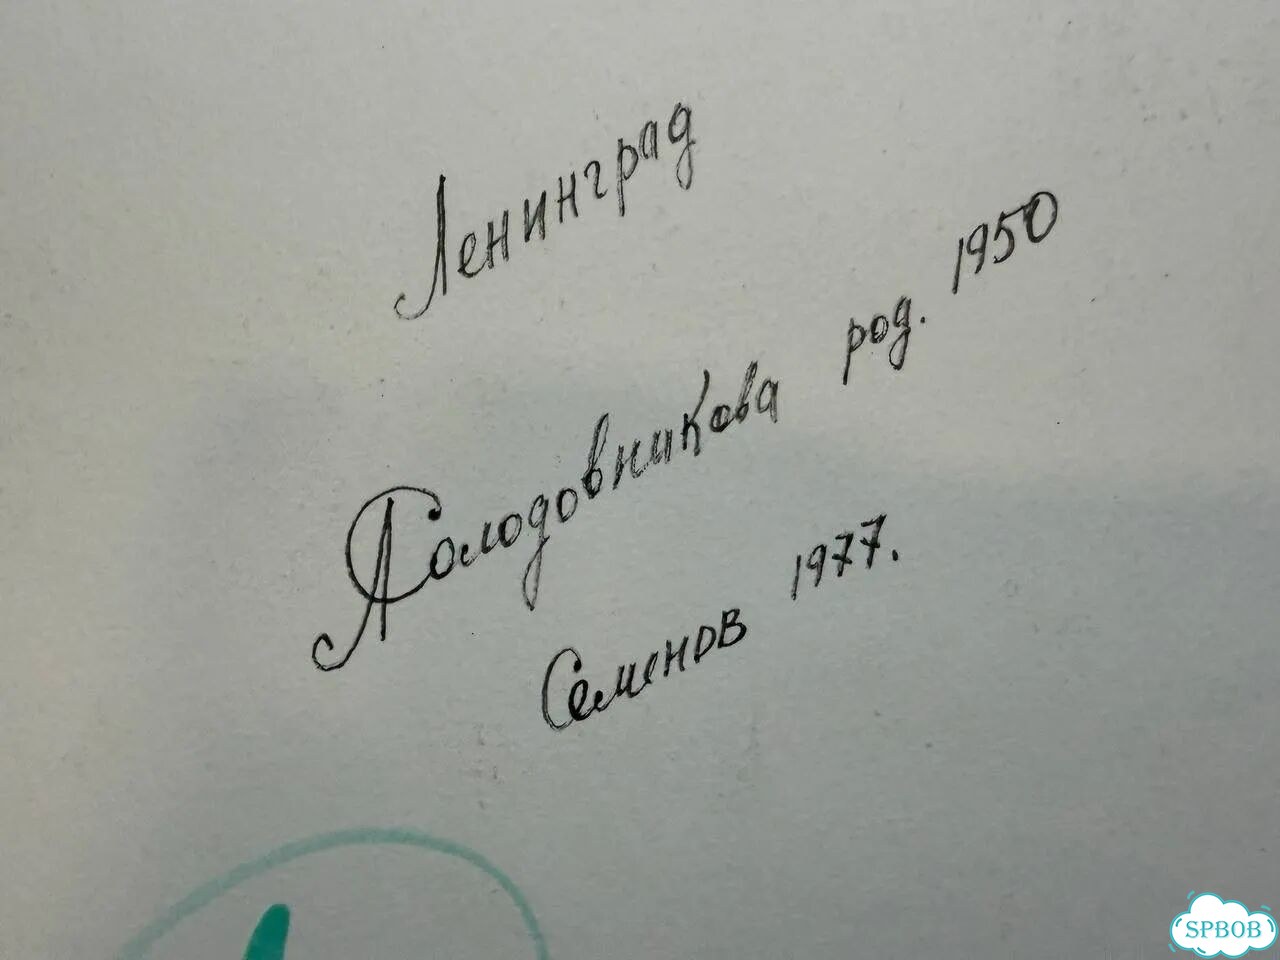 Ленинград
Солодовникова род. 1950
Семенов 1977.
SPBOB